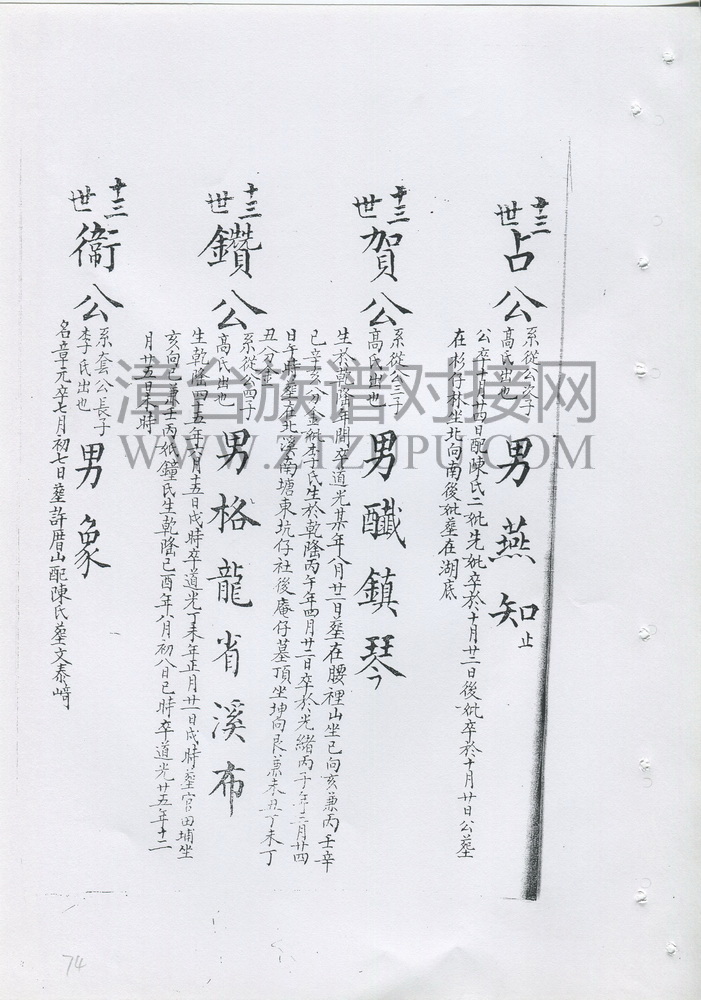 十三世
占公
系從公次子
高氏出也
男燕知止
公卒十月廿四日配陳氏二妣先妣卒於十月廿二日後妣卒於十月廿日公塟
在杉仔林坐北向南後妣塟在湖底
十三世
賀公
系從公三子
高氏出也
男鎮琴
生於乾隆年間卒道光某年八月廿二日塟在腰裡山坐巳向亥兼丙壬辛
巳辛亥分金妣李氏生於乾隆丙午年四月廿二日卒於光緒丙子年二月廿四
日午時塟在北溪南塘東坑仔社後庵仔墓頂坐坤向艮兼未丑丁未丁
丑分金
十三世
鑽公
系從公四子
高氏出也
男格龍省溪布
生乾隆四十五年六月十五日戌時卒道光丁未年正月廿一日戌時塟官田埔坐
亥向巳兼壬丙妣鐘氏生乾隆己酉年八月初八日巳時卒道光廿五年十二
月廿五日未時
十三世
衛公
系套公長子
李氏出也
男象
名章元卒七月初七日塟許厝山配陳氏塟文泰崎
漳台族谱对接网
WWW.ZTZUPU.COM
74